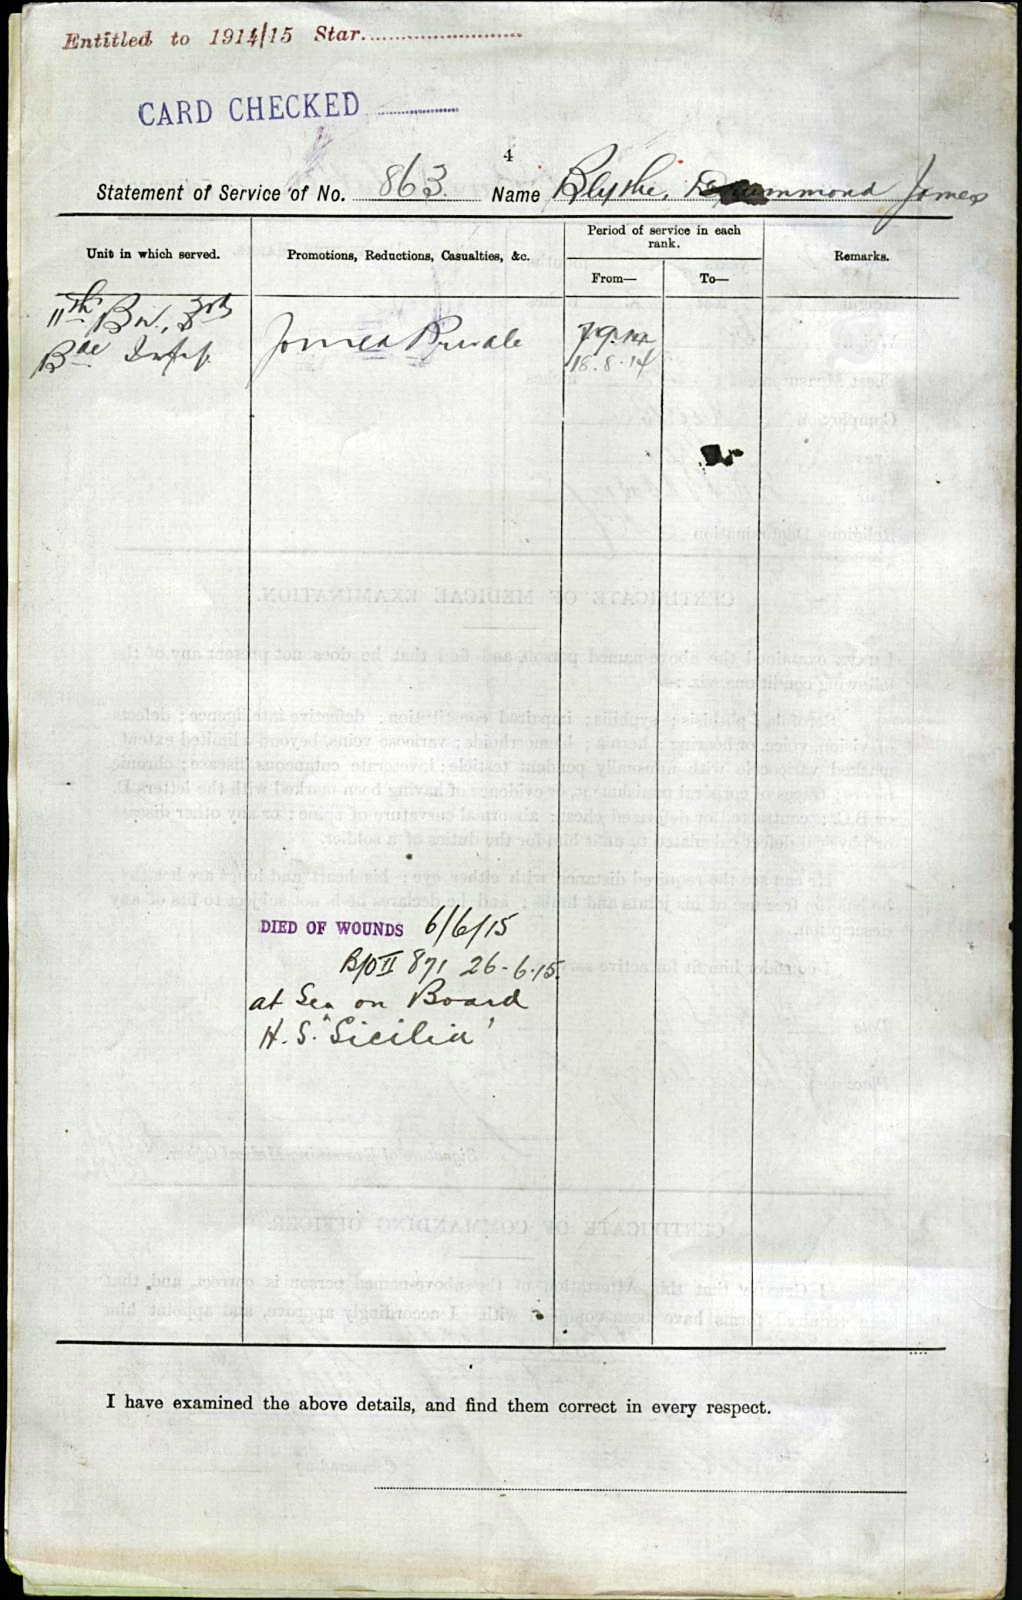 Entitled to 1914/15 Star
CARD CHECKED
4
Statement of Service of No. 863. Name Blythe, Drummond James
Unit in which served.
Promotions, Reductions, Casualties, &c.
Period of service in each rank.
From—
To—
Remarks.
11th Bn., 3rd
Bde Infy.
Joined Private
18.8.14
DIED OF WOUNDS 6/6/15
B/O II 871 26-6-15.
at Sea on Board
H.S. "Sicilia"
I have examined the above details, and find them correct in every respect.